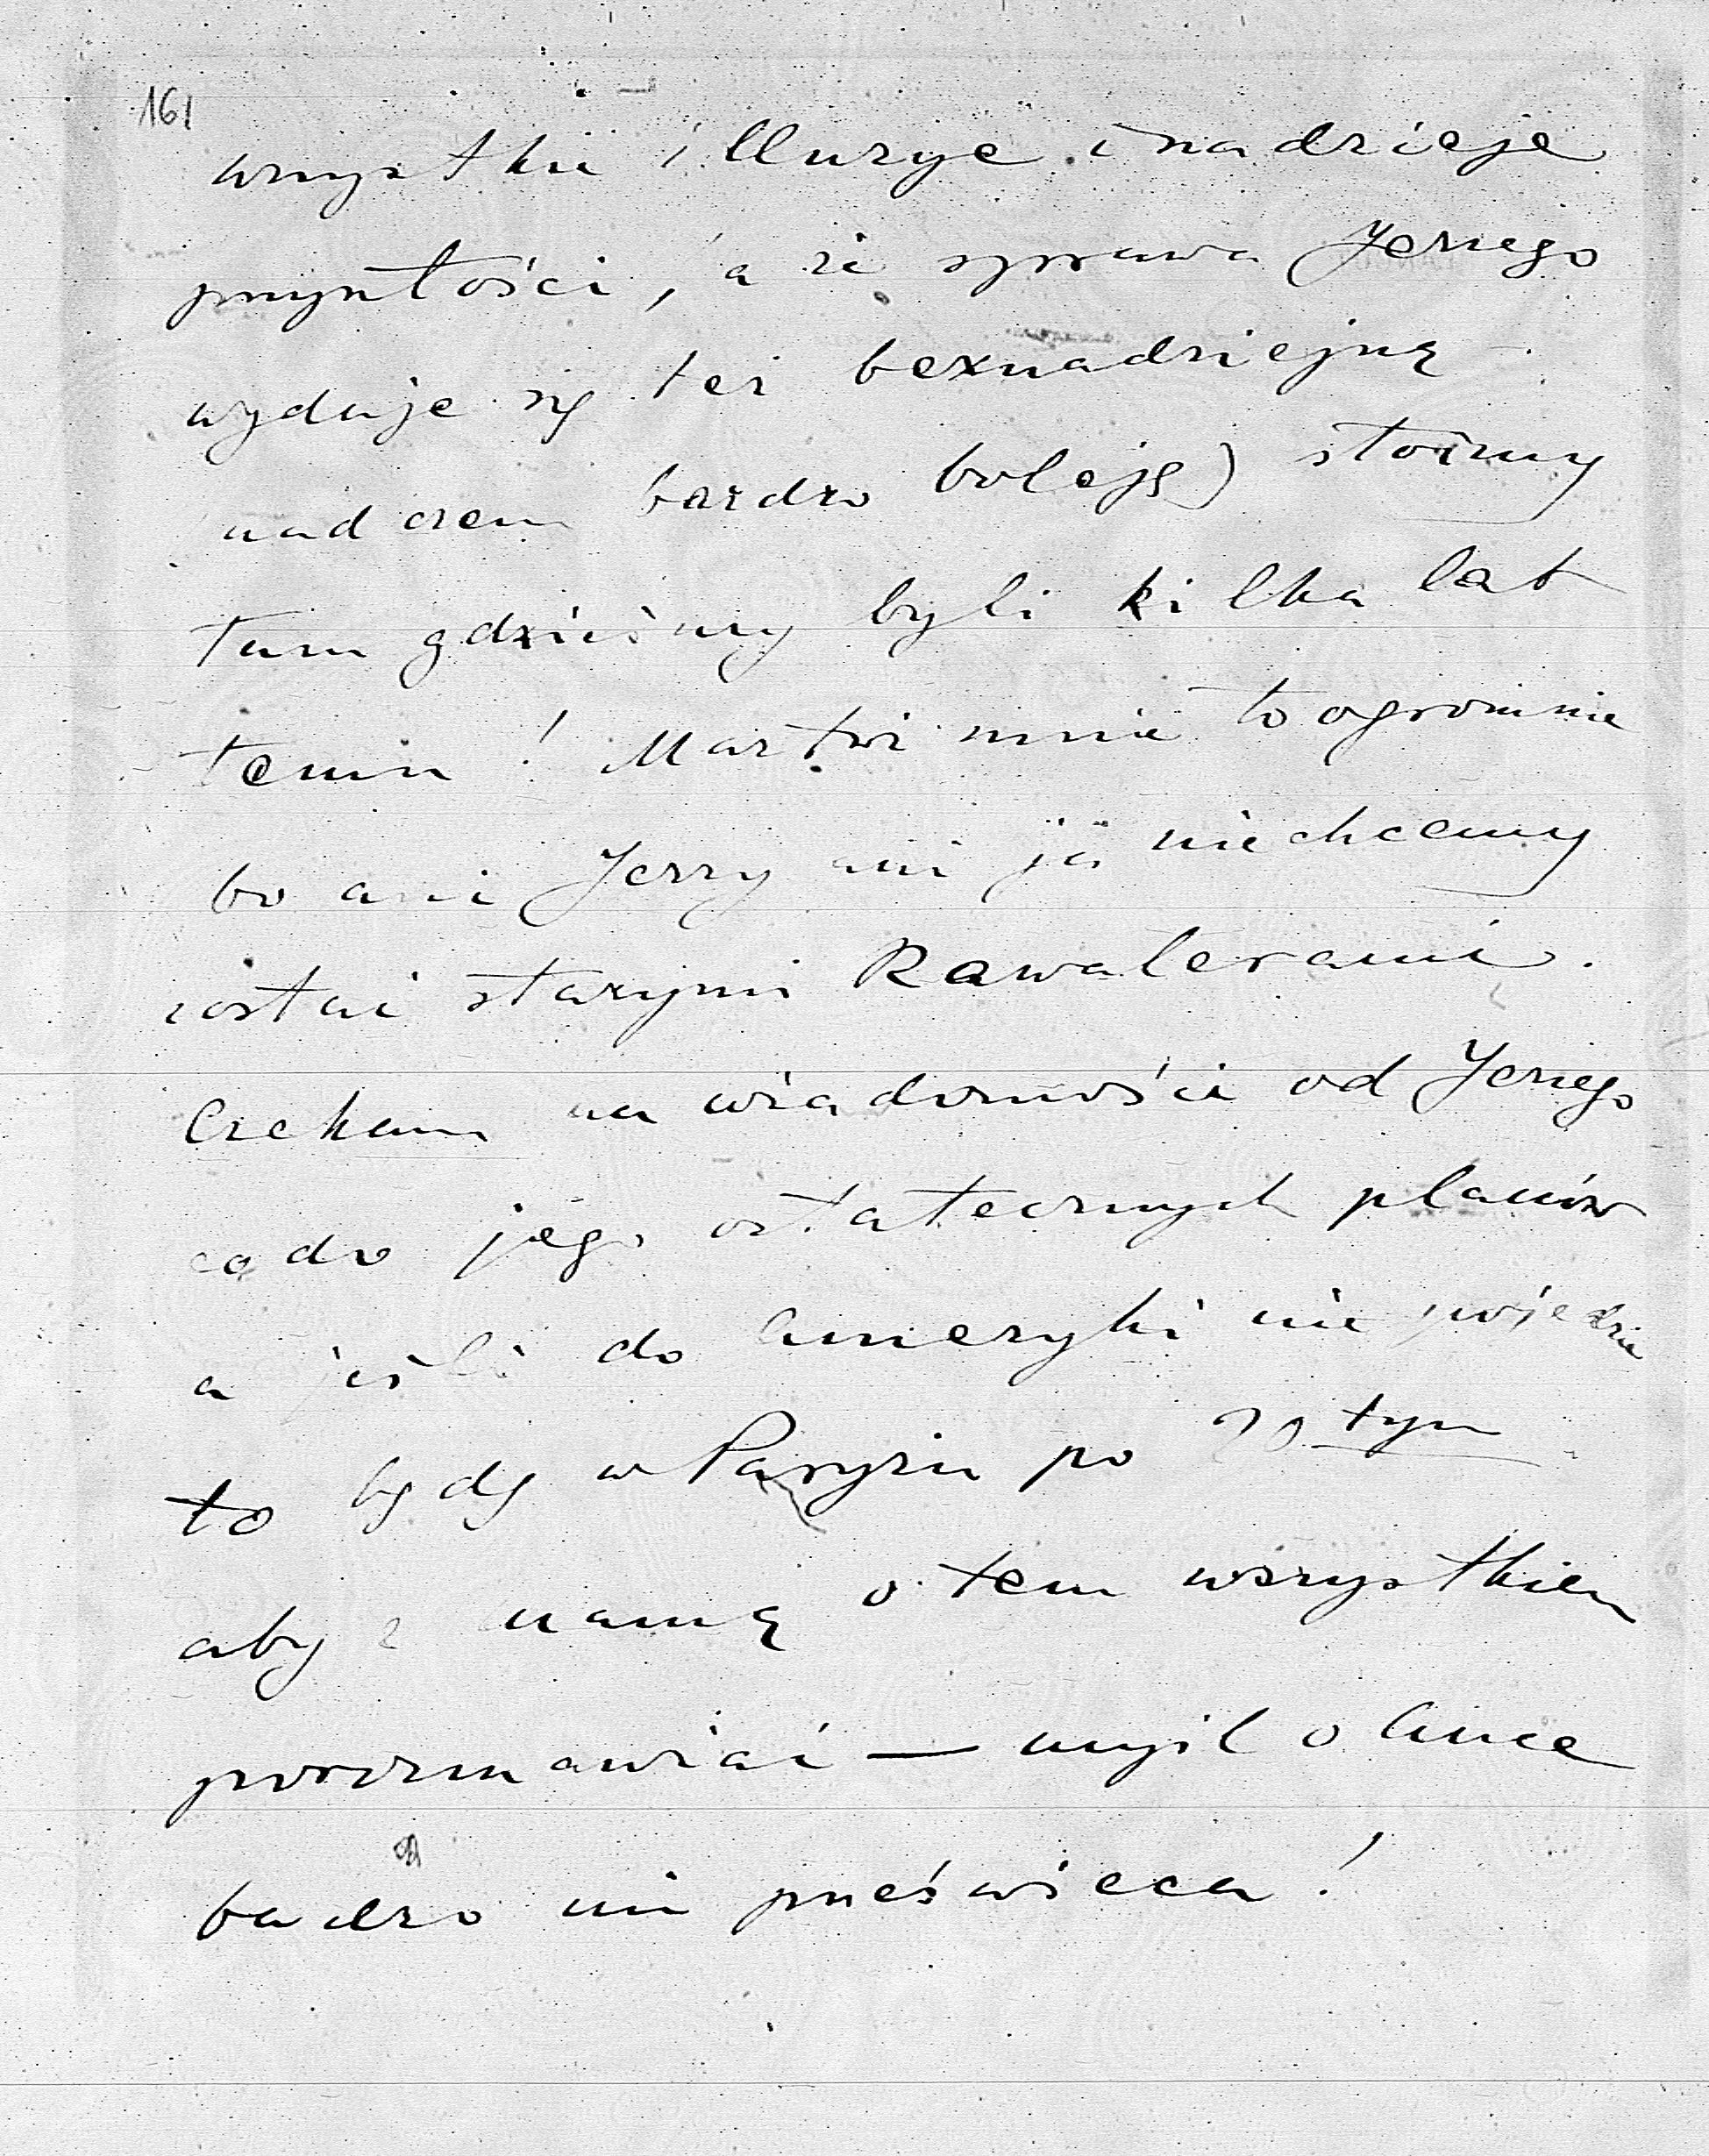 161
wszystkie illuzye i nadzieje
przyszłości, a że sprawa Jerzego
wydaje się też beznadziejną
nad czem bardzo boleję) stoimy
tam gdzieśmy byli kilka lat
temu! Martwi mnie to ogromnie
bo ani Jerzy ani ja niechcemy
zostać starymi Kawalerami.
Czekam na wiadomości od Jerzego
co do jego ostatecznych planów
a jeśli do Ameryki nie pojedzie
to będę w Paryżu po 20 tym
aby z mamą o tem wszystkiem
porozmawiać — myśl o Ance
bardzo mi prześwieca!